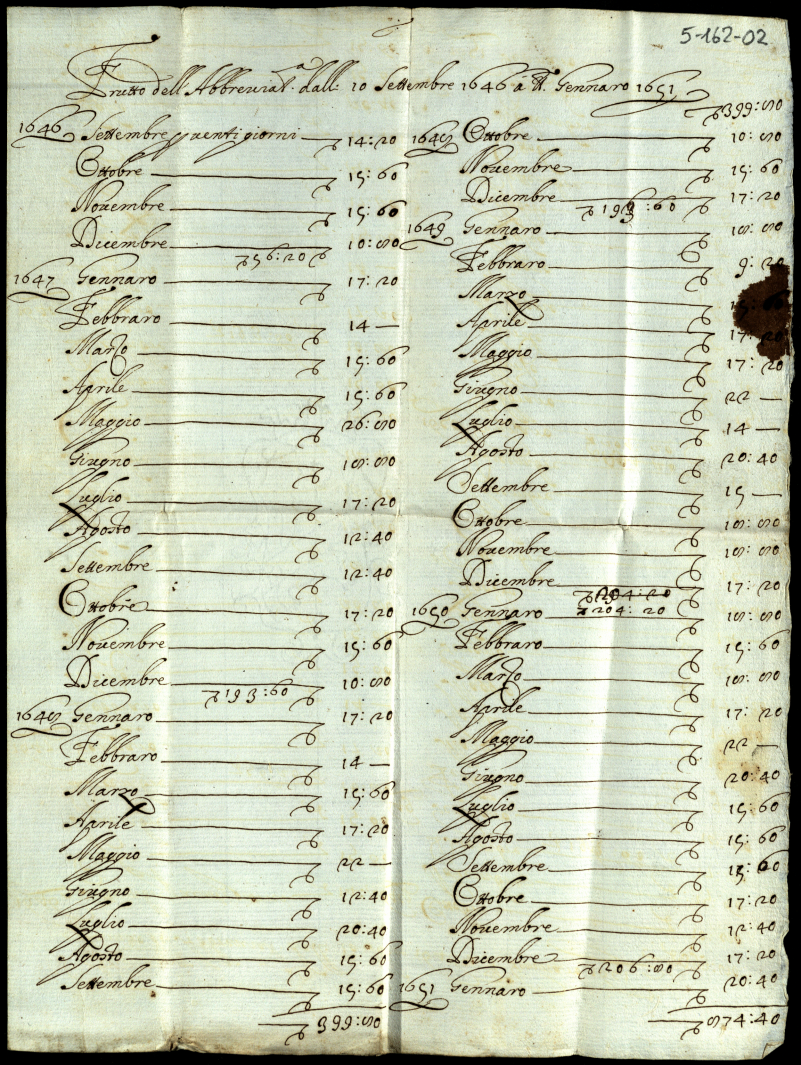 5-162-02
Frutto dell'Abbreuiat.ª dall: 10 Settembre 1646 á tt. Gennaro 1651
1646 Settembre p uenti giorni 14:20
Ottobre 15:60
Nouembre 15:60
Dicembre 56:20 10:80
1647 Gennaro 17:20
Febbraro 14 —
Marzo 15:60
Aprile 15:60
Maggio 26:80
Giugno 18:80
Luglio 17:20
Agosto 12:40
Settembre 12:40
Ottobre 17:20
Nouembre 15:60
Dicembre 193:60 10:80
1648 Gennaro 17:20
Febbraro 14 —
Marzo 15:60
Aprile 17:20
Maggio 22 —
Giugno 12:40
Luglio 20:40
Agosto 15:60
Settembre 15:60
399:80
399:80
1648 Ottobre 10:80
Nouembre 15:60
Dicembre 193:60 17:20
1649 Gennaro 18:80
Febbraro 9:20
Marzo 15:60
Aprile 17:20
Maggio 17:20
Giugno 22 —
Luglio 14 —
Agosto 20:40
Settembre 15 —
Ottobre 18:80
Nouembre 18:80
Dicembre 204:20 17:20
1650 Gennaro 204:20 18:80
Febbraro 15:60
Marzo 18:80
Aprile 17:20
Maggio 22 —
Giugno 20:40
Luglio 15:60
Agosto 15:60
Settembre 15:60
Ottobre 17:20
Nouembre 12:40
Dicembre 206:80 17:20
1651 Gennaro 20:40
874:40